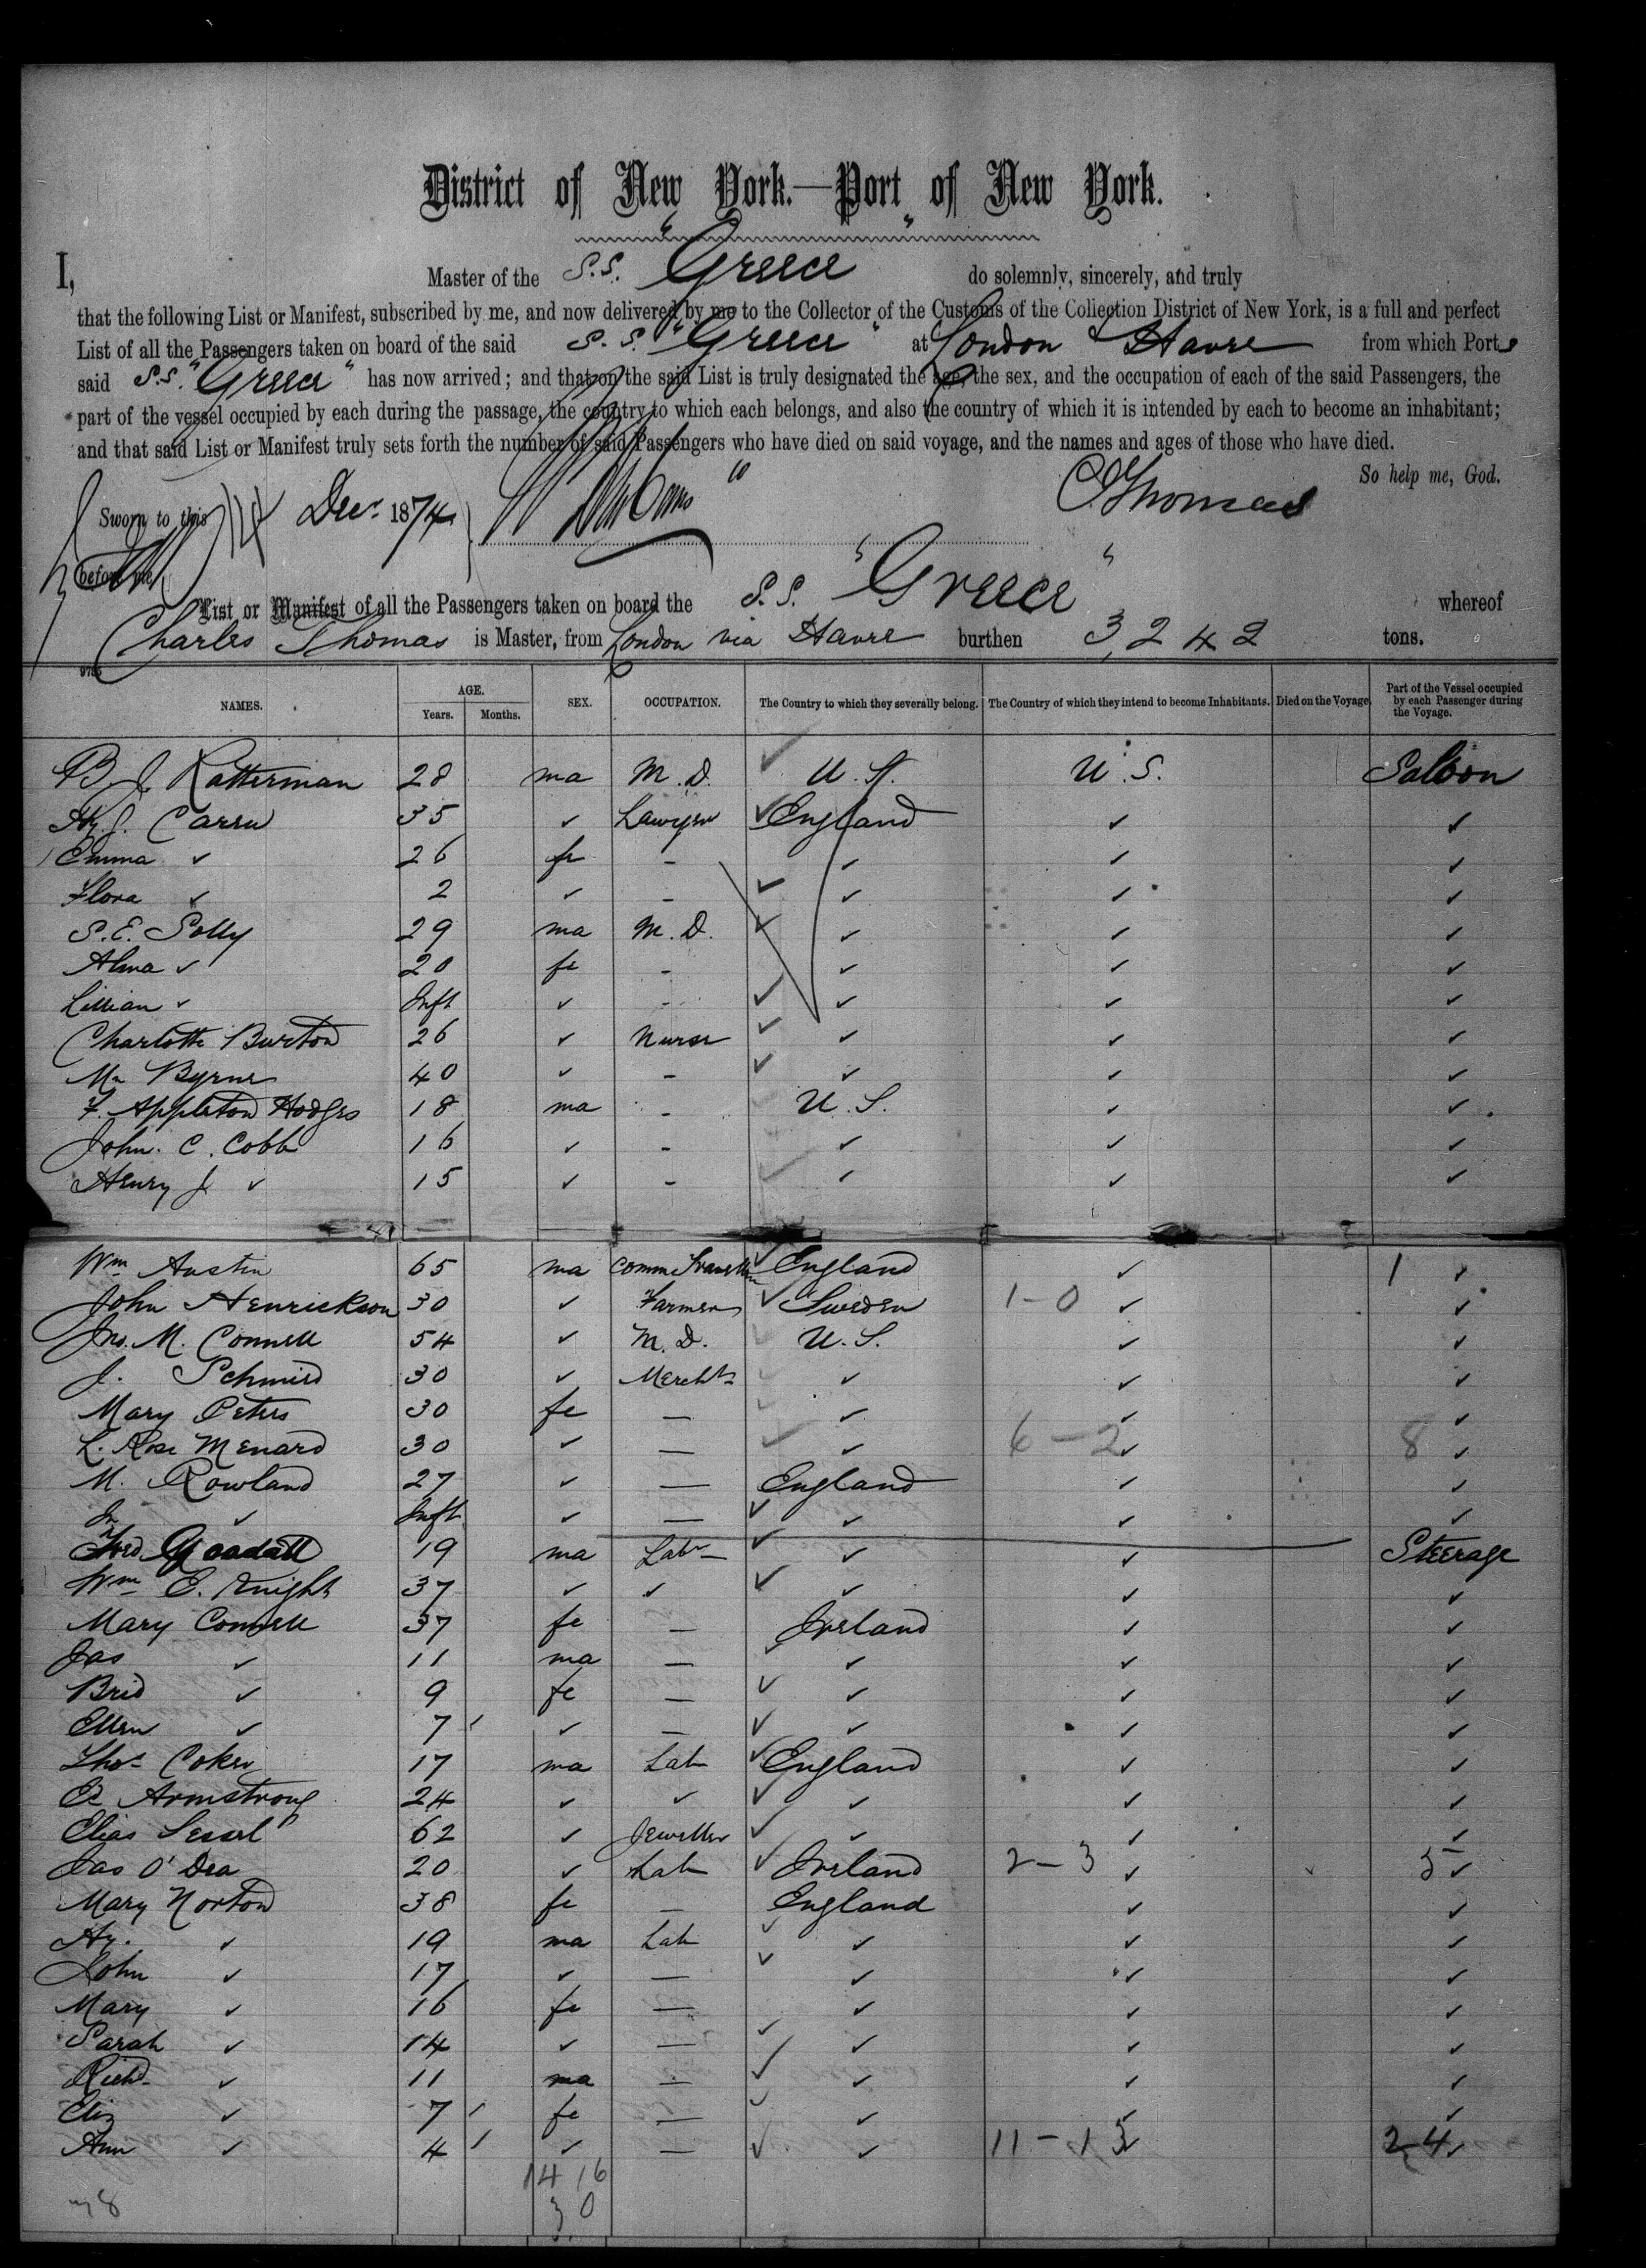 District of New York.—Port of New York.
I, Master of the S.S. "Greece" do solemnly, sincerely, and truly
that the following List or Manifest, subscribed by me, and now delivered by me to the Collector of the Customs of the Collection District of New York, is a full and perfect
List of all the Passengers taken on board of the said S.S. "Greece" at London Havre from which Ports
said S.S. "Greece" has now arrived; and that on the said List is truly designated the age, the sex, and the occupation of each of the said Passengers, the
part of the vessel occupied by each during the passage, the country to which each belongs, and also the country of which it is intended by each to become an inhabitant;
and that said List or Manifest truly sets forth the number of said Passengers who have died on said voyage, and the names and ages of those who have died.
So help me, God.
Sworn to this 14 Dec. 1874 C Thomas
before me
List or Manifest of all the Passengers taken on board the S.S. "Greece" whereof
Charles Thomas is Master, from London via Havre burthen 3,242 tons.
NAMES. AGE. Years. Months. SEX. OCCUPATION. The Country to which they severally belong. The Country of which they intend to become Inhabitants. Died on the Voyage. Part of the Vessel occupied by each Passenger during the Voyage.
B J Ratterman 28 ma M.D. ✓ U.S. U.S. Saloon
Hy. J. Carew 35 ✓ Lawyer ✓ England ✓ ✓
Emma ✓ 26 fe - ✓ ✓ ✓
Flora ✓ 2 ✓ - ✓ ✓ ✓ ✓
S.E. Solly 29 ma M.D. ✓ ✓ ✓ ✓
Alma ✓ 20 fe - ✓ ✓ ✓
Lillian ✓ Inft ✓ - ✓ ✓ ✓ ✓
Charlotte Burton 26 ✓ Nurse ✓ ✓ ✓ ✓
Byrne 40 ✓ - ✓ ✓ ✓ ✓
F. Appleton Hodges 18 ma - U.S. ✓ ✓
John. C. Cobb 16 ✓ - ✓ ✓ ✓
Henry J ✓ 15 ✓ - ✓ ✓ ✓ ✓
Wm Austin 65 ma Comme Traveller ✓ England ✓ 1 ✓
John Henrickson 30 ✓ Farmer ✓ Sweden 1-0 ✓ ✓
Jno. M. Connell 54 ✓ M.D. ✓ U.S. ✓ ✓
J. Schmid 30 ✓ Mercht ✓ ✓ ✓ ✓
Mary Peters 30 fe — ✓ ✓ ✓ ✓
L. Rose Menard 30 ✓ — ✓ ✓ 6-2 ✓ 8 ✓
M. Rowland 27 ✓ — England ✓ ✓
✓ Inft ✓ — ✓ ✓ ✓ ✓
Fred Goodall 19 ma Labr ✓ ✓ ✓ Steerage
Wm E. Knight 37 ✓ ✓ ✓ ✓ ✓ ✓
Mary Connell 37 fe — Ireland ✓ ✓
Jas ✓ 11 ma — ✓ ✓ ✓ ✓
Brid ✓ 9 fe — ✓ ✓ ✓ ✓
Ellen ✓ 7 ✓ — ✓ ✓ ✓ ✓
Thos Coker 17 ma Lab ✓ England ✓ ✓
Armstrong 24 ✓ ✓ ✓ ✓ ✓ ✓
Elias Lessel 62 ✓ Jeweller ✓ ✓ ✓ ✓
Jas O'Dea 20 ✓ Lab ✓ Ireland 2-3 ✓ 5 ✓
Mary Norton 38 fe — England ✓ ✓
Hy. ✓ 19 ma Lab ✓ ✓ ✓ ✓
John ✓ 17 ✓ — ✓ ✓ ✓ ✓
Mary ✓ 16 fe — ✓ ✓ ✓
Sarah ✓ 14 ✓ — ✓ ✓ ✓ ✓
Richd ✓ 11 ma — ✓ ✓ ✓ ✓
Eliz ✓ 7 fe — ✓ ✓ ✓ ✓
Ann ✓ 4 ✓ — ✓ ✓ 11-13 ✓ 24 ✓
14 16
30